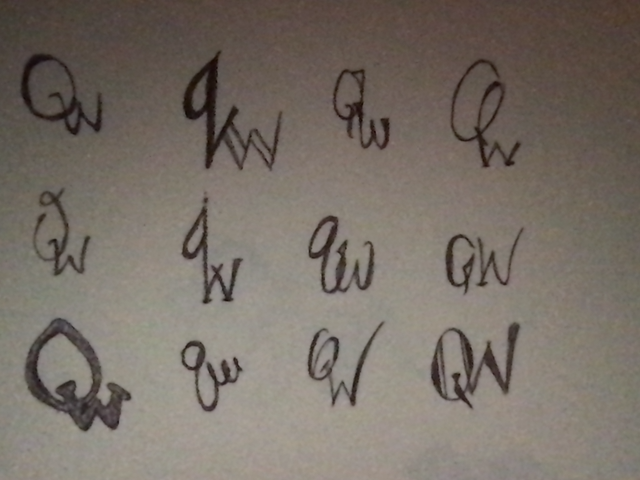 Qw qw Qw Qw
Qw qw qw QW
Qw qw QW QW